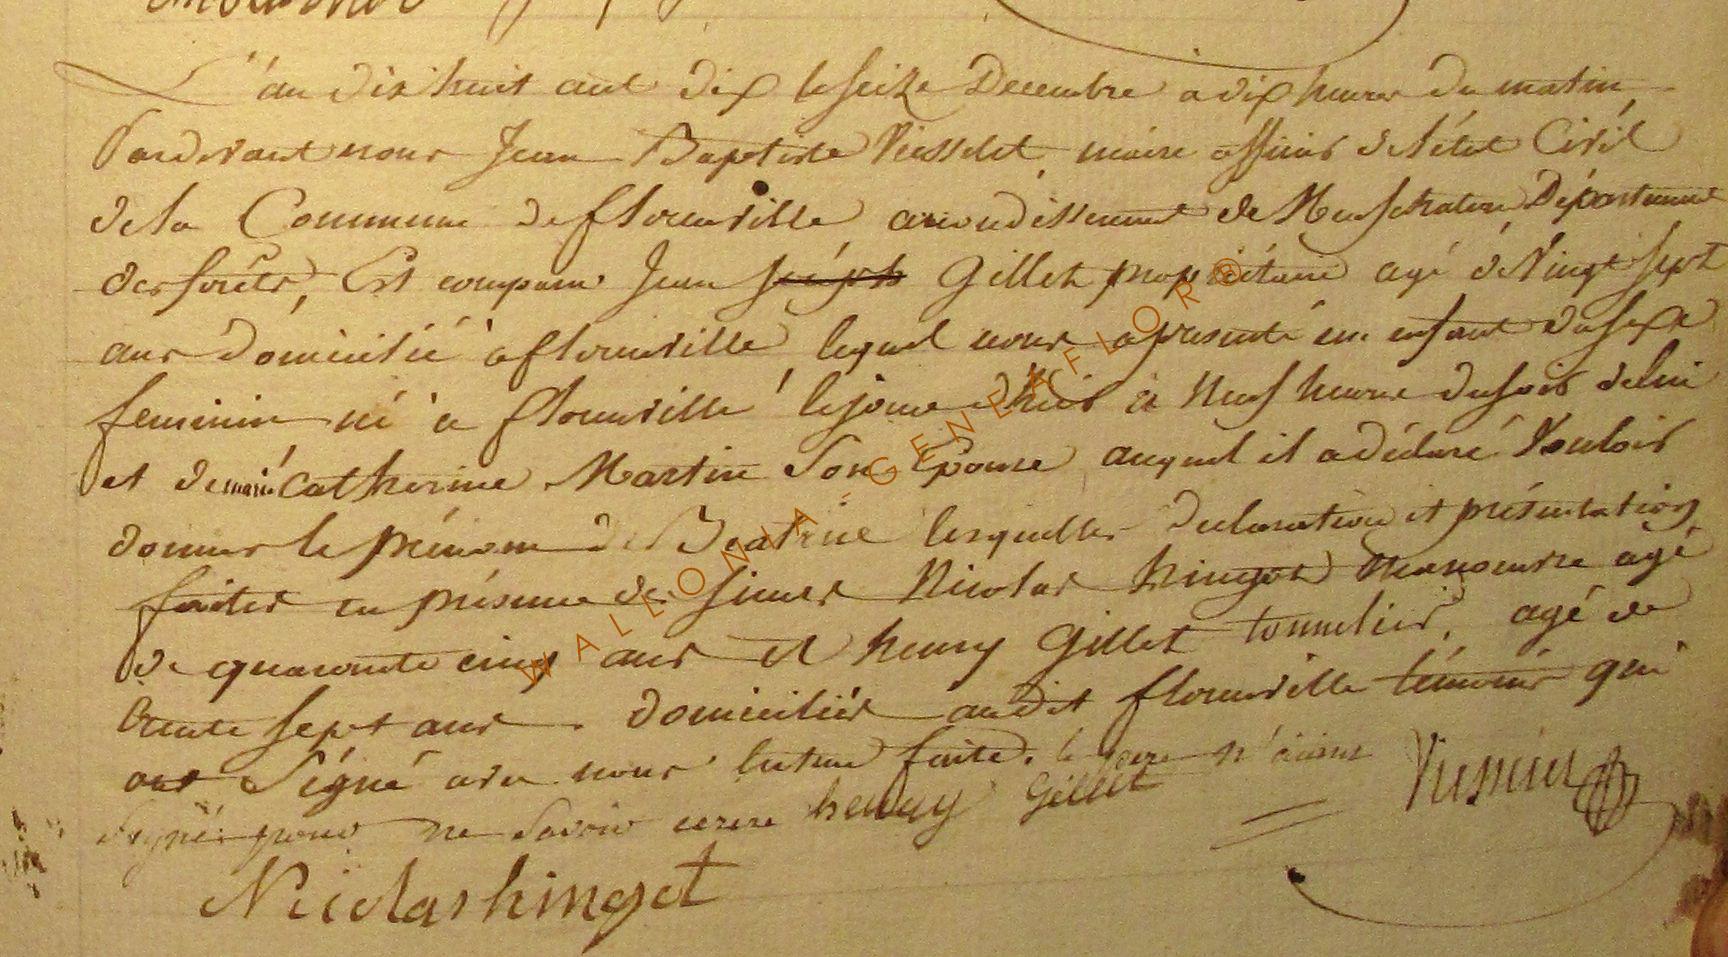 L'an dix huit cent dix le seize Decembre à dix heures du matin
Pardevant nous Jean Baptiste maire officier de l'état Civil
de la Commune de florenville arrondissement de Neufchateau Département
des forêts, Est comparu Jean Joseph Gillet propriétaire agé de Vingt sept
ans domicilié à florenville lequel nous a presenté un enfant du sexe
feminin né à florenville le jour d'hier à Neuf heures du soir de lui
et de marie Catherine Martin Son Epouse auquel il a déclaré Vouloir
donner le prénom de Beatrice lesquelles declaration et présentation
faites en présence de sieurs Nicolas hingot manoeuvre agé
de quarante cinq ans et henry Gillet tonnelier, agé de
trente sept ans domiciliés audit florenville témoins qui
ont Signé avec nous lecture faite. le pere n'aiant
Signé pour ne Savoir ecrire henry Gillet
Nicolas hingot
WALLONIA - GENEAFLOR®